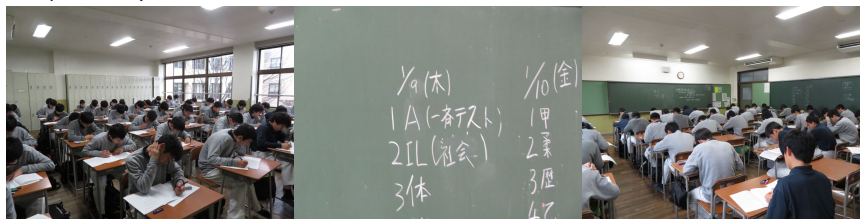 1/9(木)
1A(一斉テスト)
2IL(社会)
3体
1/10(金)
1甲
2柔
3歴